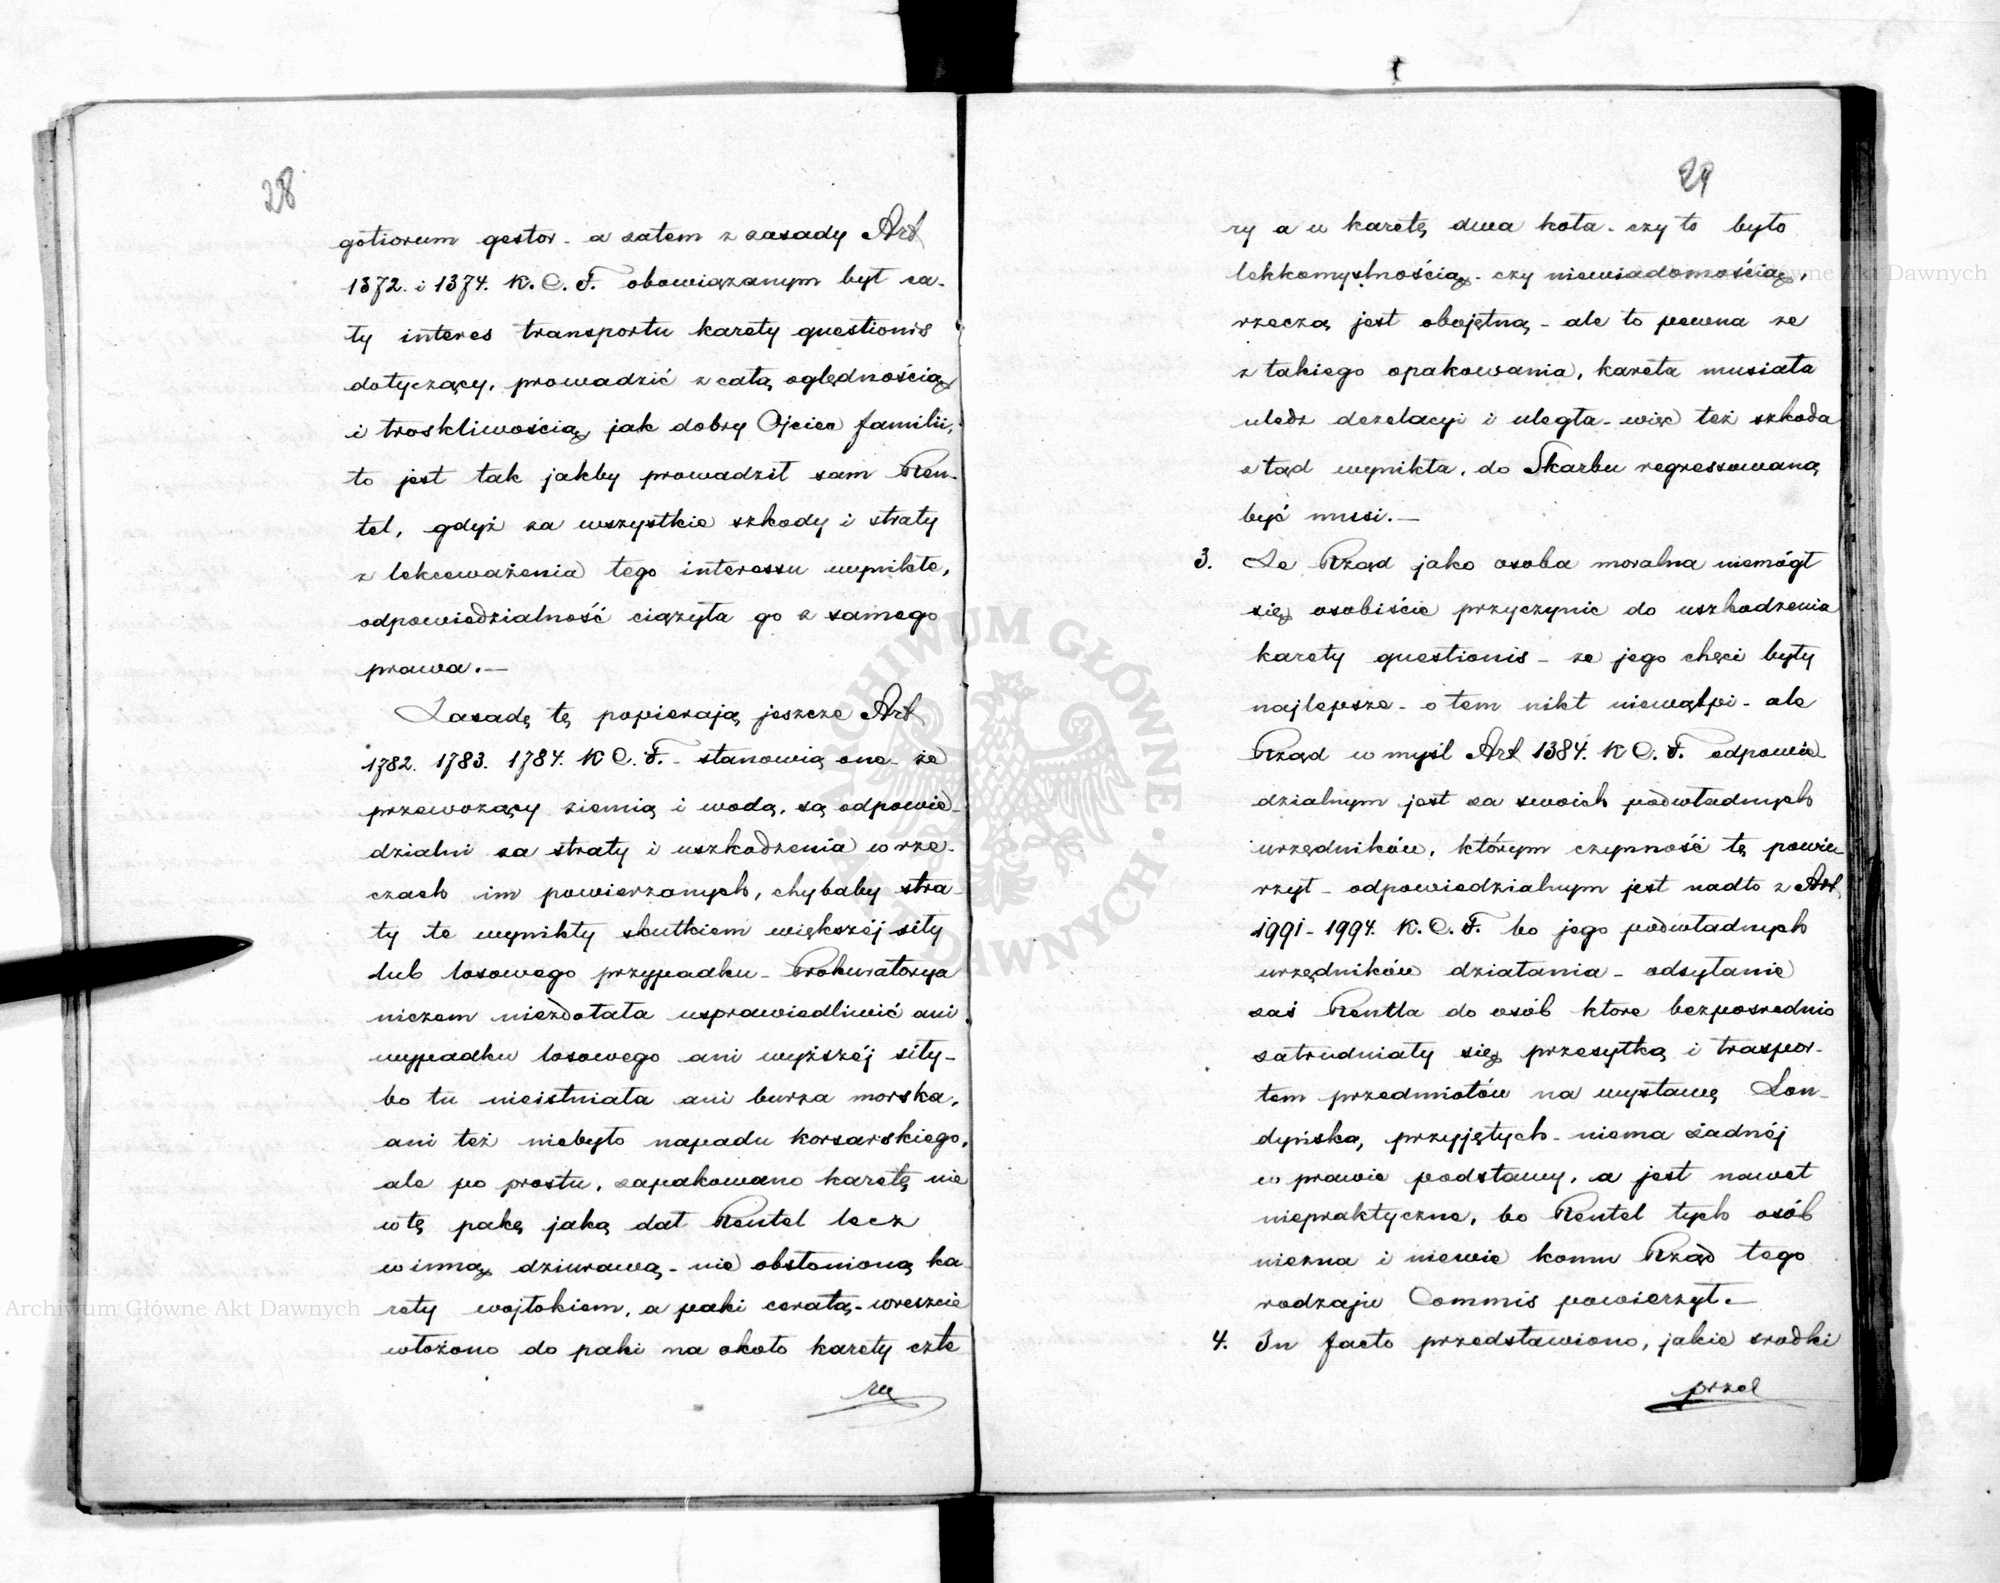 28
gotiorum gestor - a zatem z zasady Art
1372. i 1374. K. C. F. obowiązanym był ca-
ły interes transportu karety questionis
dotyczący, prowadzić z całą oględnością
i troskliwością, jak dobry Ojciec familii,
to jest tak jakby prowadził sam Ren-
tel, gdyż za wszystkie szkody i straty
z lekceważenia tego interessu wynikłe,
odpowiedzialność ciążyła go z samego
prawa. —
Zasadę tę popierają jeszcze Art
1782. 1783. 1784. K C. F. - stanowią one - że
przewożący ziemią i wodą, są odpowie-
dzialni za straty i uszkodzenia w rze-
czach im powierzanych, chybaby stra-
ty te wynikły skutkiem większéj siły
lub losowego przypadku - Prokuratorya
niczem niezdołała usprawiedliwić ani
wypadku losowego ani wyższéj siły -
bo tu nieistniała ani burza morska,
ani też niebyło napadu korsarskiego,
ale po prostu, zapakowano karetę nie
w tę pakę jaką dał Rentel lecz
w inną, dziurawą - nie obsłonioną ka-
rety wojłokiem, a paki ceratą - wreszcie
włożono do paki na około karety czte
ry
29
ry a u karetę dwa koła - czy to było
lekkomyślnością - czy niewiadomością,
rzeczą jest obojętną - ale to pewna ze
z takiego opakowania, kareta musiała
uledz dezelacyi i uległa - więc też szkoda
z tąd wynikła, do Skarbu regressowaną
być musi. —
3. Ze Rząd jako osoba moralna niemógł
się osobiście przyczynic do uszkodzenia
karety questionis - ze jego chęci były
najlepsze - o tem nikt niewątpi - ale
Rząd w myśl Art 1384. K C. F. odpowie
dzialnym jest za swoich podwładnych
urzędników, którym czynność tę powie-
rzył - odpowiedzialnym jest nadto z Art
1991 - 1994. K. C. F. bo jego podwładnych
urzędników działania - odsyłanie
zaś Rentla do osób ktore bezposrednio
zatrudniały się przesyłką i traspor-
tem przedmiotów na wystawę Lon-
dyńską, przyjętych - niema żadnéj
w prawie podstawy, a jest nawet
niepraktyczne, bo Rentel tych osób
niezna i niewie komu Rząd tego
rodzaju Commis powierzył. —
4. In facto przedstawiono, jakie srodki
przed
ARCHIWUM GŁÓWNE AKT DAWNYCH
Archiwum Główne Akt Dawnych
Archiwum Główne Akt Dawnych